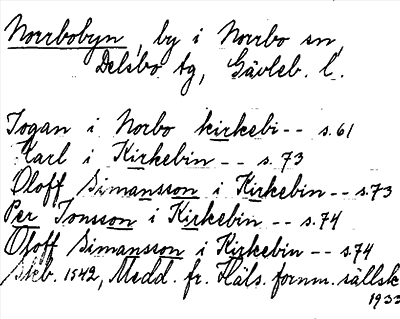 Norrbobyn, by i Norrbo sn,
Delsbo tg, Gävleb. l.
Jogan i Norbo kirkebi-- s.61
Karl i Kirkebin -- s.73
Oloff Simansson i Kirkebin -- s.73
Per Jonsson i Kirkebin -- s.74
Oloff Simansson i Kirkebin -- s.74
Skb. 1542, Medd. fr. Häls. fornm. sällsk
1933